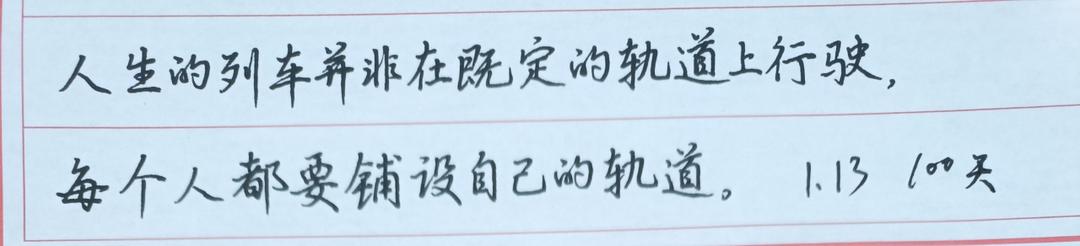 人生的列车并非在既定的轨道上行驶,
每个人都要铺设自己的轨道。 1.13 100天